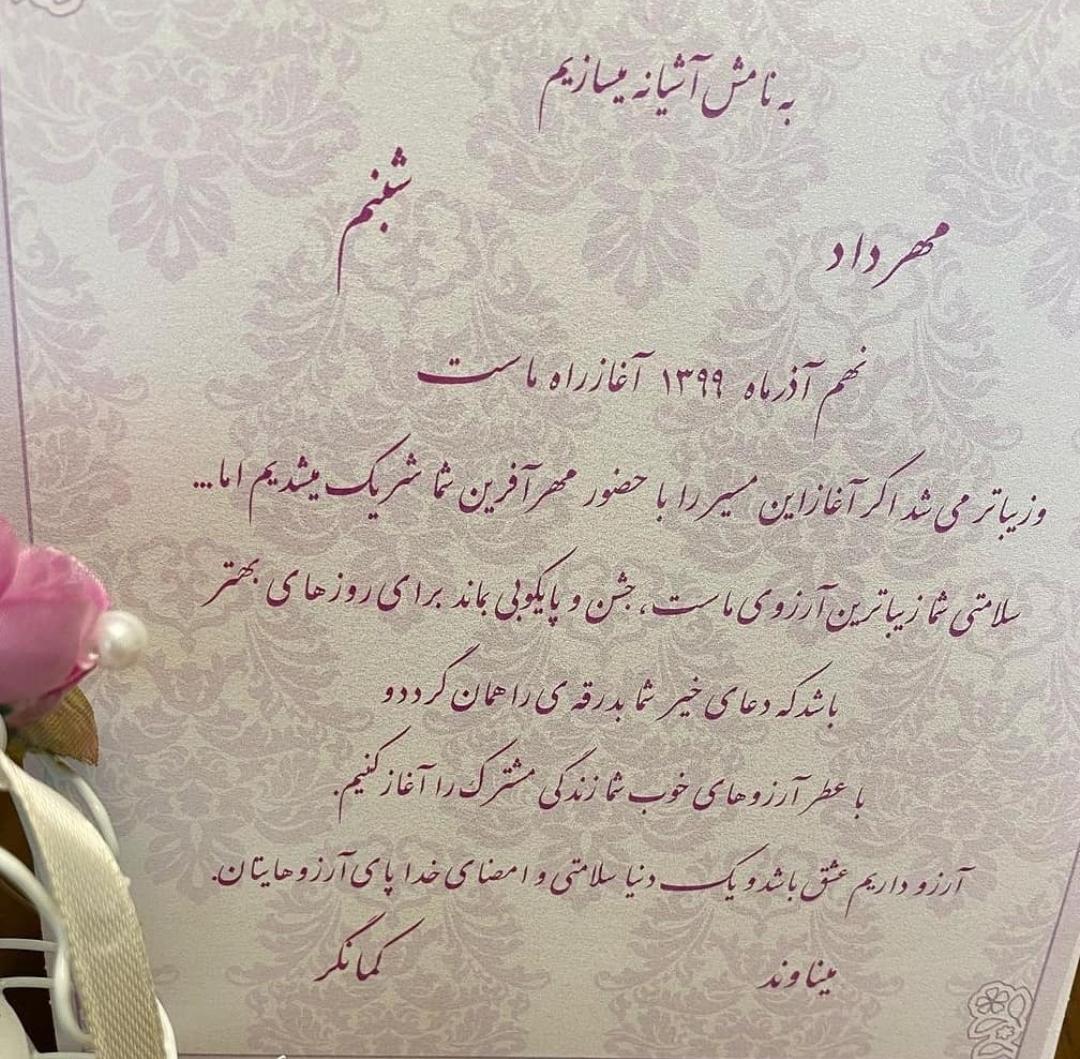 به نامش آشیانه میسازیم
مهرداد شبنم
نهم آذرماه ۱۳۹۹ آغاز راه ماست
و زیباتر می شد اگر آغاز این مسیر را با حضور مهرآفرین شما شریک میشدیم اما...
سلامتی شما زیباترین آرزوی ماست، جشن و پایکوبی بماند برای روزهای بهتر
باشد که دعای خیر شما بدرقه ی راهمان گردد و
با عطر آرزوهای خوب شما زندگی مشترک را آغاز کنیم.
آرزو داریم عشق باشد و یک دنیا سلامتی و امضای خدا پای آرزوهایتان.
میناوند کمانگر